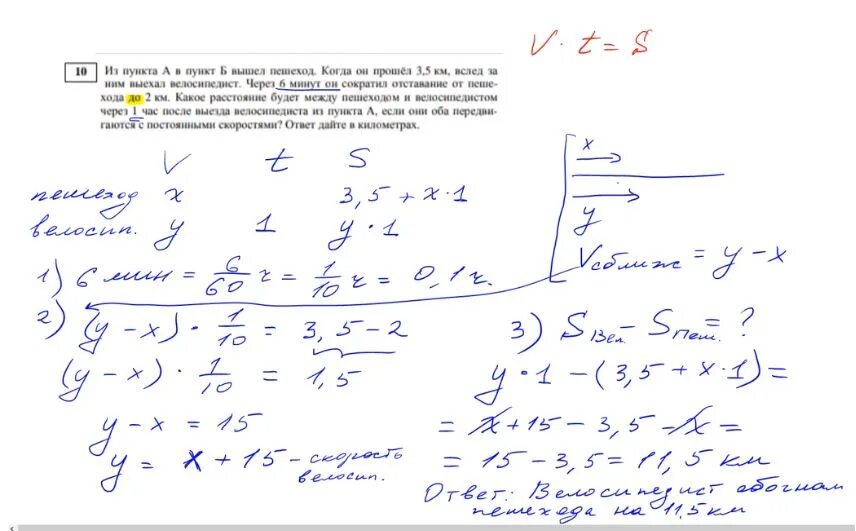 V · t = S
10 Из пункта А в пункт Б вышел пешеход. Когда он прошёл 3,5 км, вслед за
ним выехал велосипедист. Через 6 минут он сократил отставание от пеше-
хода до 2 км. Какое расстояние будет между пешеходом и велосипедистом
через 1 час после выезда велосипедиста из пункта А, если они оба передви-
гаются с постоянными скоростями? Ответ дайте в километрах.
V t S
пешеход x 3,5 + x · 1
велосип. y 1 y · 1
x
y
Vсближ = y - x
1) 6 мин = 6/60 ч = 1/10 ч = 0,1 ч.
2) (y - x) · 1/10 = 3,5 - 2
(y - x) · 1/10 = 1,5
y - x = 15
y = x + 15 - скорость
велосип.
3) Sвел. - Sпеш. = ?
y · 1 - (3,5 + x · 1) =
= x + 15 - 3,5 - x =
= 15 - 3,5 = 11,5 км
Ответ: Велосипедист обогнал
пешехода на 11,5 км